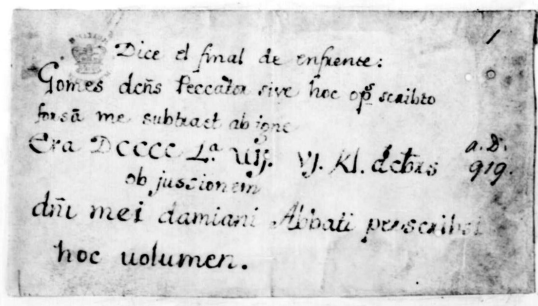 1
Dice el final de enfrente:
Gomes dcñs Peccator sive hoc opˢ scribto
forsā me subtract ab igne
Era DCCCC Lª VIJ. VJ. Kl. dcbrs a. D. 919.
ob jussionem
dñi mei damiani Abbati perscribsi
hoc uolumen.